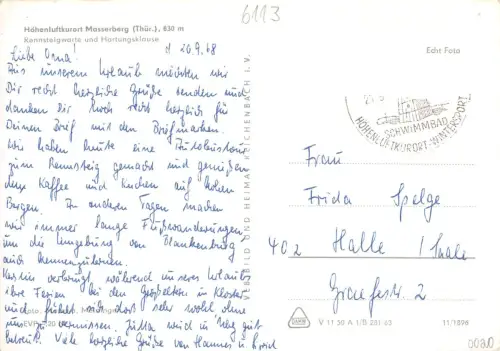 6113
Höhenluftkurort Masserberg (Thür.), 830 m
Rennsteigwarte und Hartungsklause
Echt Foto
d 26.9.68
Liebe Oma!
Aus unserem Urlaub möchten wir
Dir recht herzliche Grüße senden und
danken Dir auch recht herzlich für
Deinen Brief mit den Briefmarken.
Wir haben heute eine Autobustour
zum Rennsteig gemacht und genießen
den Kaffee und Kuchen auf hohen
Bergen. An anderen Tagen machen
wir immer lange Fußwanderungen,
um die Umgebung von Blankenburg
auch kennenzulernen.
Kerstin verbringt, während unseres Urlaubs
ihre Ferien bei den Großeltern in
und fühlt sich dort sehr wohl ohne
uns zu vermissen. Jutta wird in gut
betreut. Viele herzliche Grüße von Hannes u.
VERLAG BILD UND HEIMAT REICHENBACH I. V.
SCHWIMMBAD
HÖHENLUFTKURORT WINTERSPORT
Frau
Frida Spelge
402 Halle / Saale
2
V 11 50 A 1/B 281/65
11/1896
0080